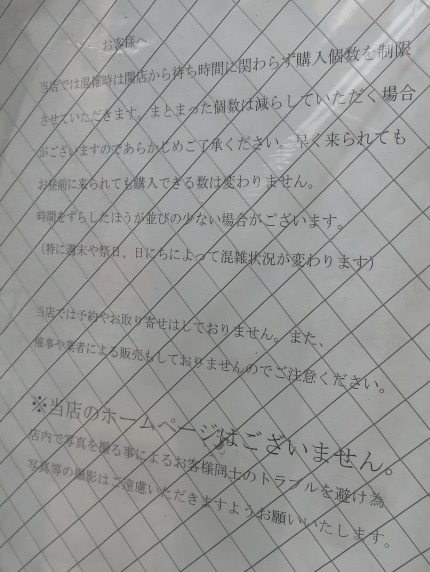 お客様へ
当店では混雑時は開店から待ち時間に関わらず購入個数を制限
させていただきます。まとまった個数は減らしていただく場合
がございますのであらかじめご了承ください。早く来られても
お昼前に来られても購入できる数は変わりません。
時間をずらしたほうが並びの少ない場合がございます。
(特に週末や祭日、日にちによって混雑状況が変わります)
当店では予約やお取り寄せはしておりません。また、
催事や業者による販売もしておりませんのでご注意ください。
※当店のホームページはございません。
店内で写真を撮る事によるお客様同士のトラブルを避け為
写真等の撮影はご遠慮いただきますようお願いいたします。